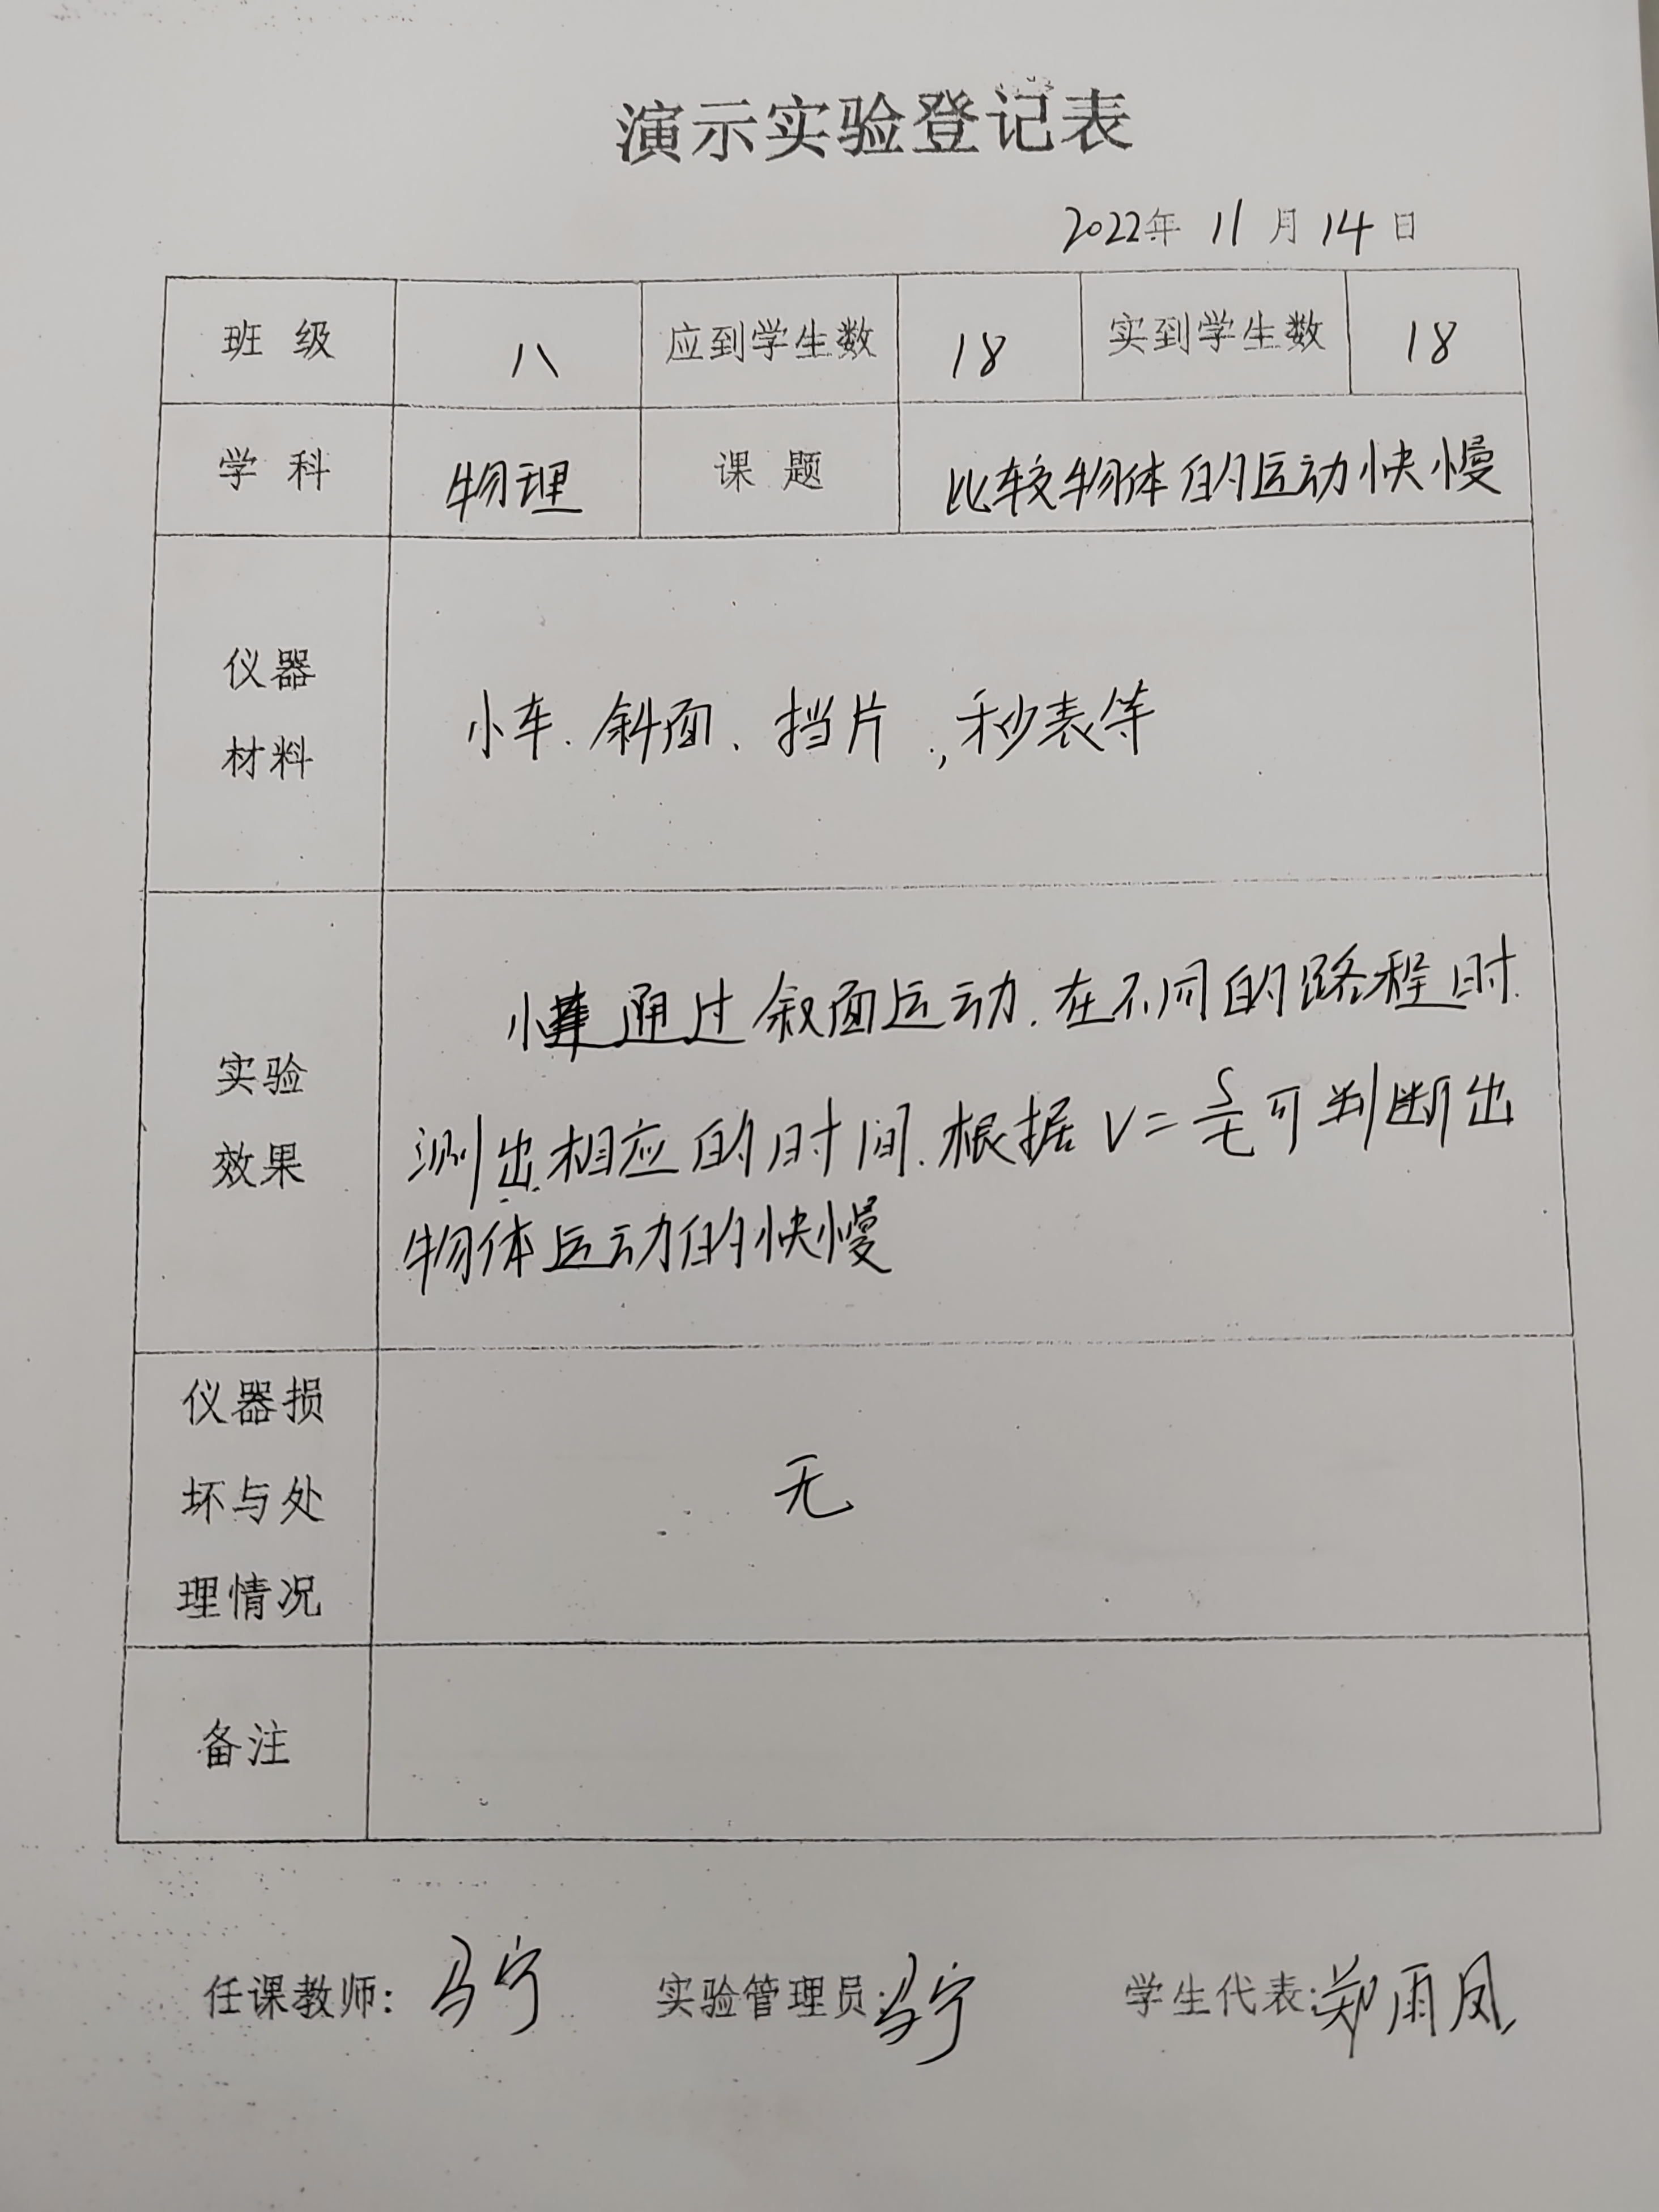 演示实验登记表
2022年 11月14日
班级 八 应到学生数 18 实到学生数 18
学科 物理 课题 比较物体的运动快慢
仪器
材料
小车、斜面、挡片,秒表等
实验
效果
小车通过叙面运动.在不同的路程时.
测出相应的时间.根据 V=s/t可判断出
物体运动的快慢
仪器损
坏与处
理情况
无
备注
任课教师: 马宁 实验管理员:马宁 学生代表:郑雨凤